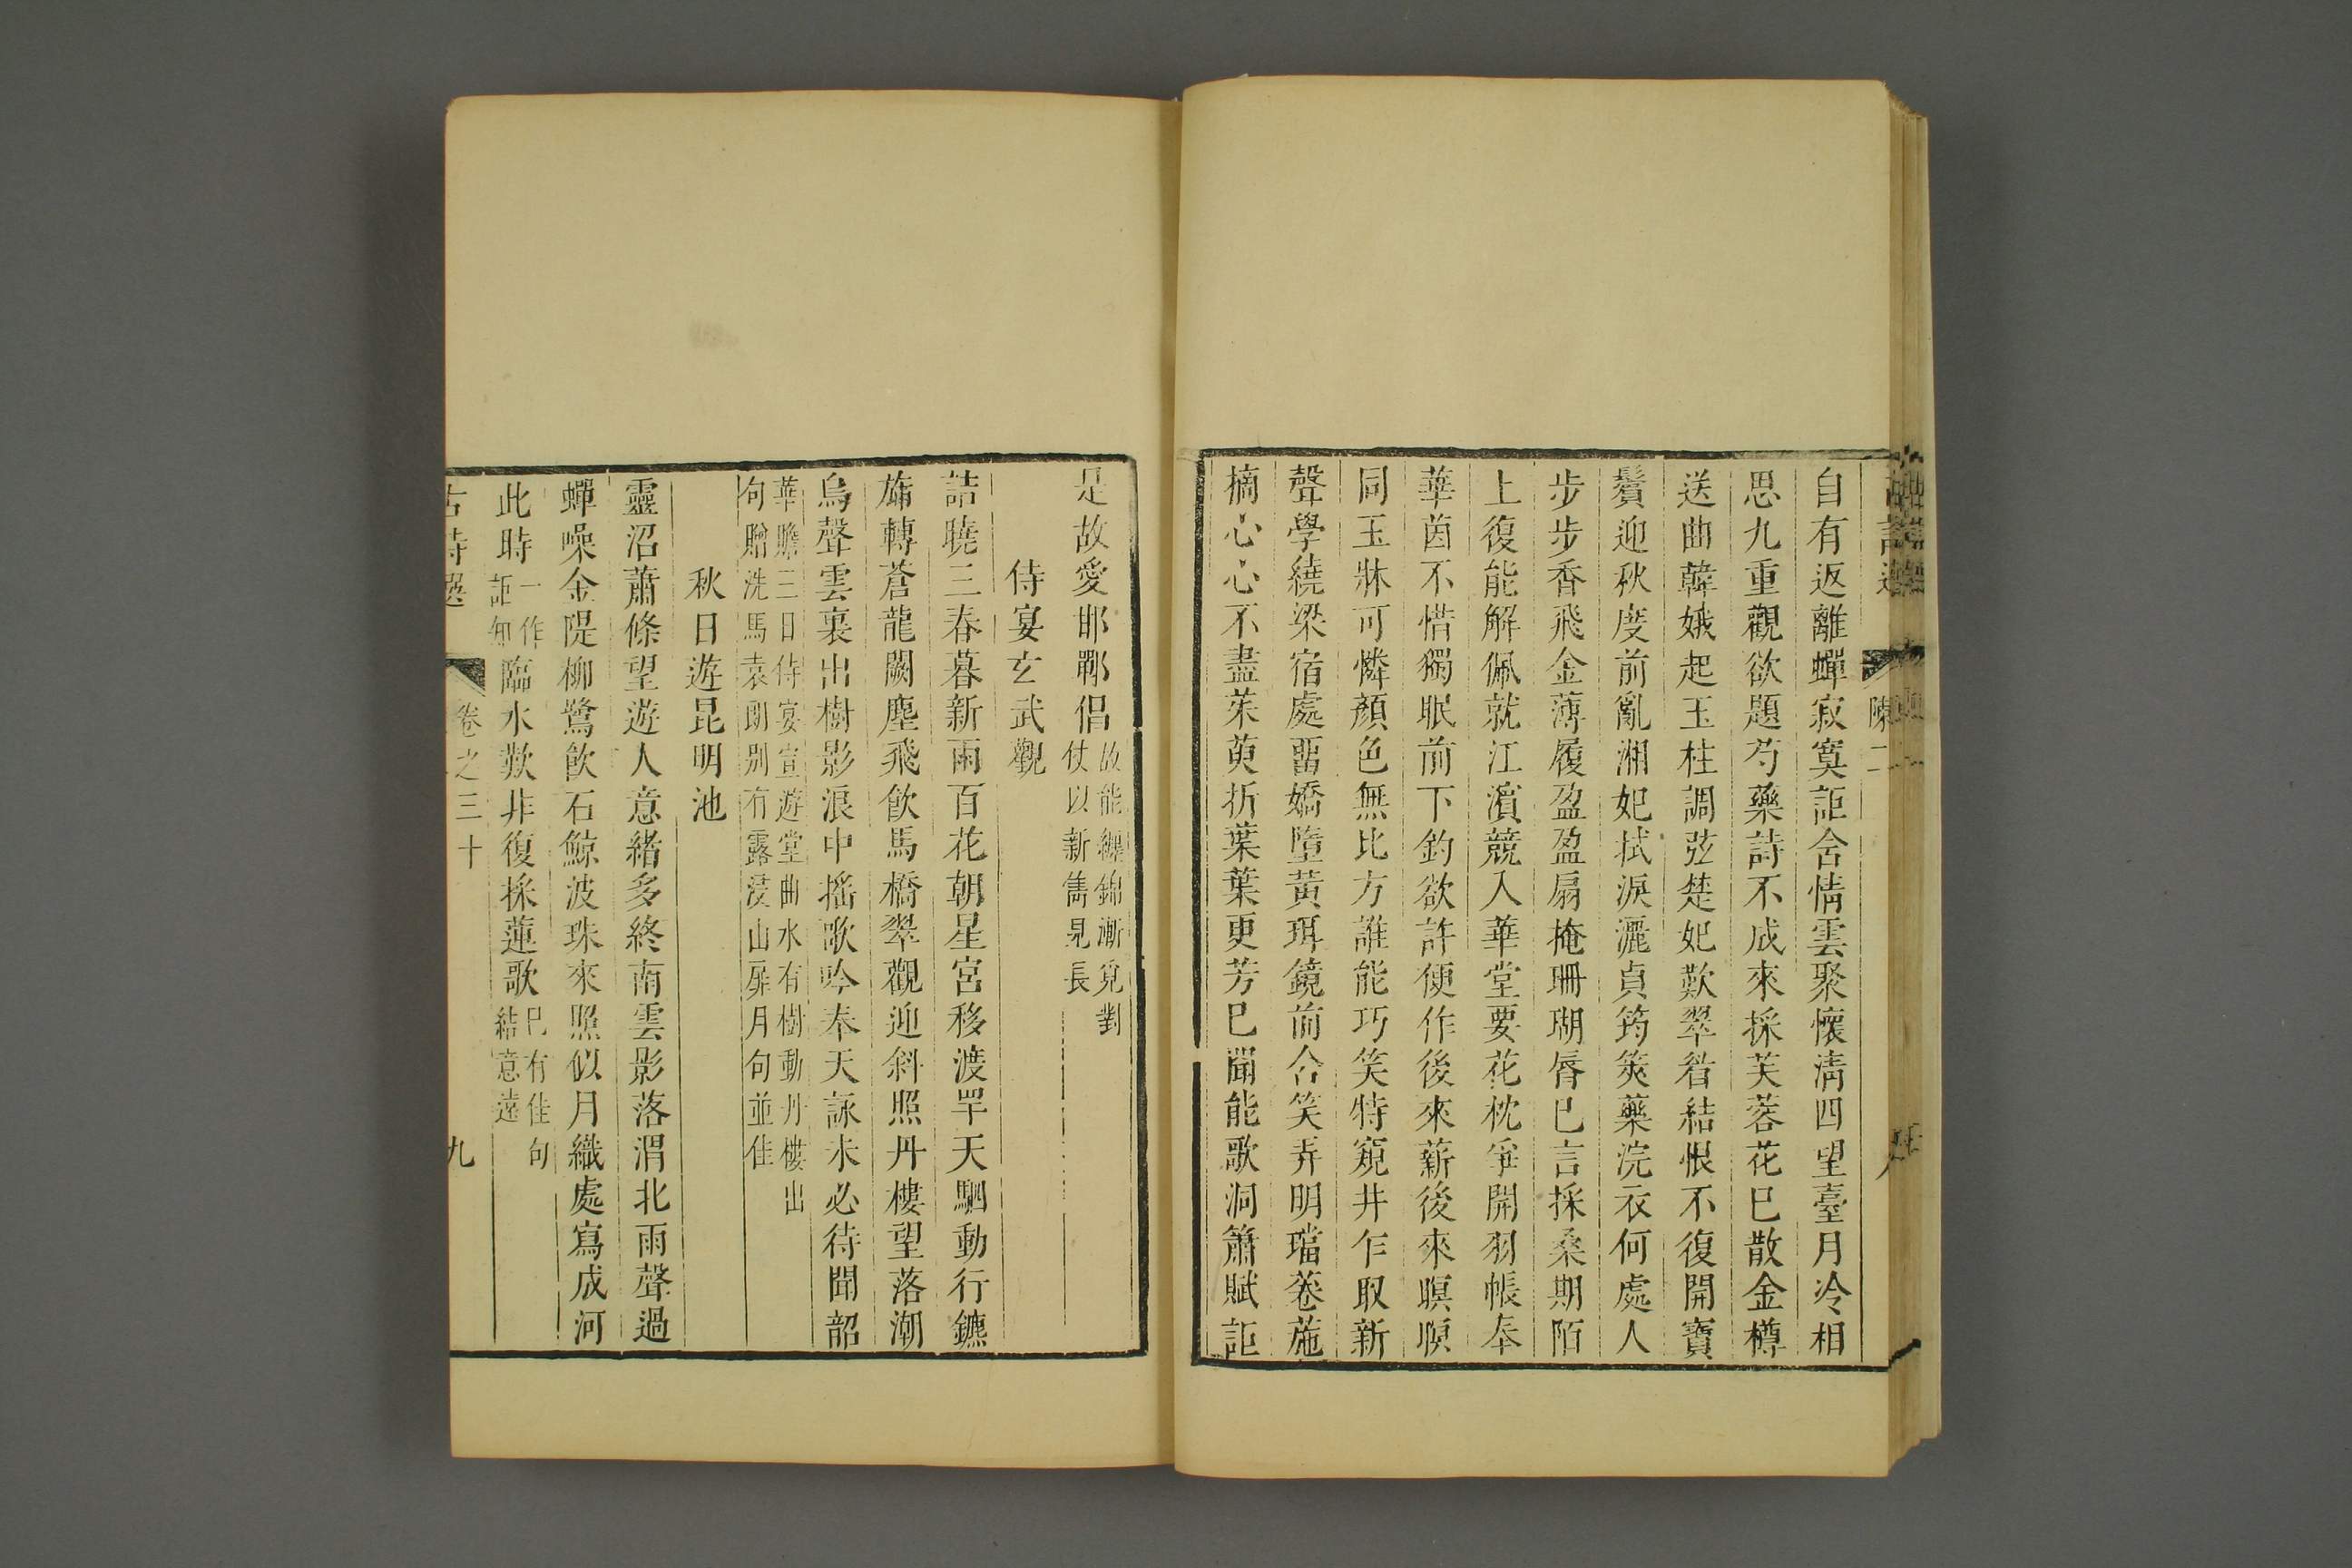 陳二
自有返離蟬寂寞詎含情雲聚懷清四望臺月冷相
思九重觀欲題芍藥詩不成來採芙蓉花已散金樽
送曲韓娥起玉柱調弦楚妃歎翠眉結恨不復開寶
鬢迎秋度前亂湘妃拭淚灑貞筠筴藥浣衣何處人
步步香飛金薄履盈盈扇掩珊瑚脣已言採桑期陌
上復能解佩就江濱競入華堂要花枕爭開羽帳奉
華茵不惜獨眠前下釣欲許便作後來薪後來暝暝
同玉牀可憐顏色無比方誰能巧笑特窺井乍取新
聲學繞梁宿處畱嬌墮黃珥鏡前含笑弄明璫菤葹
摘心心不盡茱萸折葉葉更芳已聞能歌洞簫賦詎
是故愛邯鄲倡故能纙錦漸覓對
仗以新雋見長
侍宴玄武觀
詰曉三春暮新雨百花朝星宮移渡罕天駟動行鑣
旆轉蒼龍闕塵飛飲馬橋翠觀迎斜照丹樓望落潮
鳥聲雲裏出樹影浪中搖歌吟奉天詠未必待聞韶
華贍三日侍宴宣遊堂曲水有樹動丹樓出
句贈洗馬袁朗別有露浸山扉月句並佳
秋日遊昆明池
靈沼蕭條望遊人意緒多終南雲影落渭北雨聲過
蟬噪金隄柳鷺飲石鯨波珠來照似月織處寫成河
此時一作
詎知臨水歎非復採蓮歌已有佳句
結意遠
古詩選 卷之三十 九